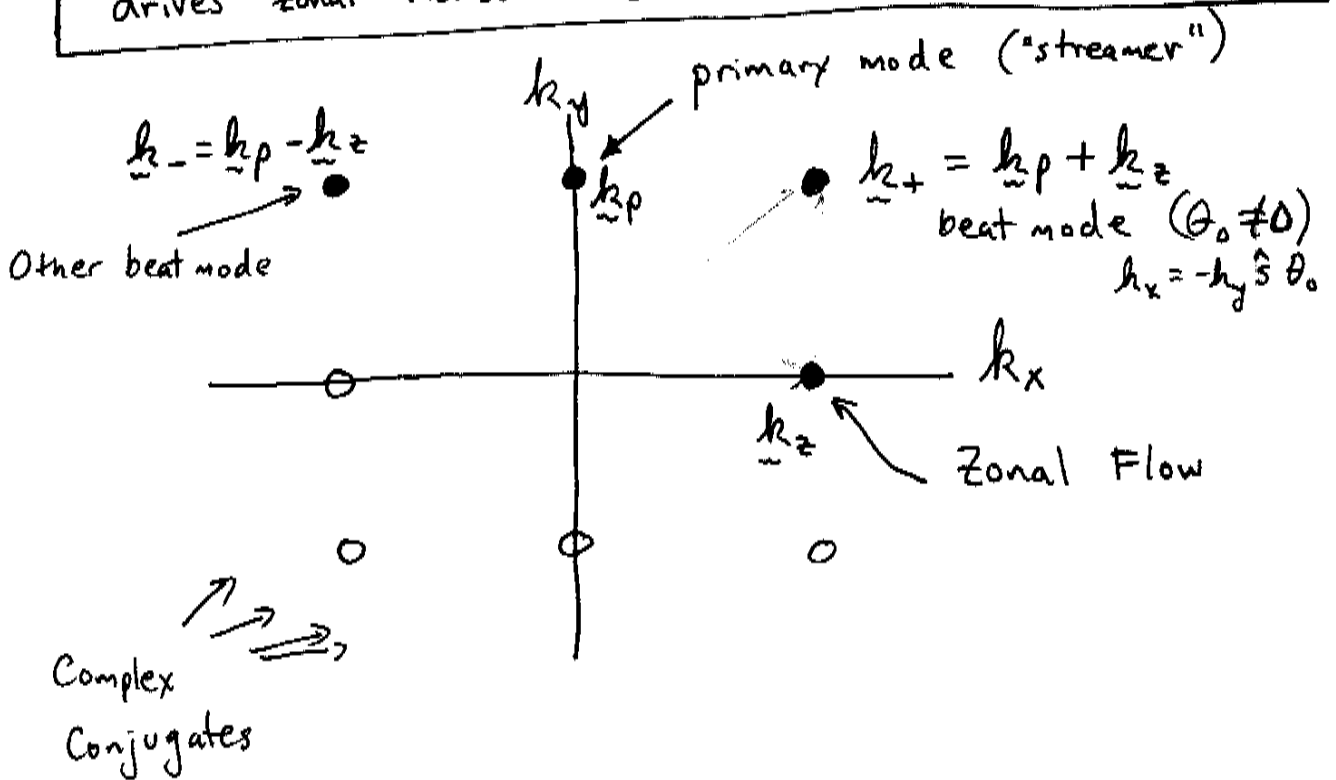 drives zonal
k_y
primary mode ("streamer")
k_- = k_p - k_z
k_p
k_+ = k_p + k_z
beat mode (θ_0 ≠ 0)
k_x = -k_y ŝ θ_0
Other beat mode
k_x
k_z
Zonal Flow
Complex
Conjugates